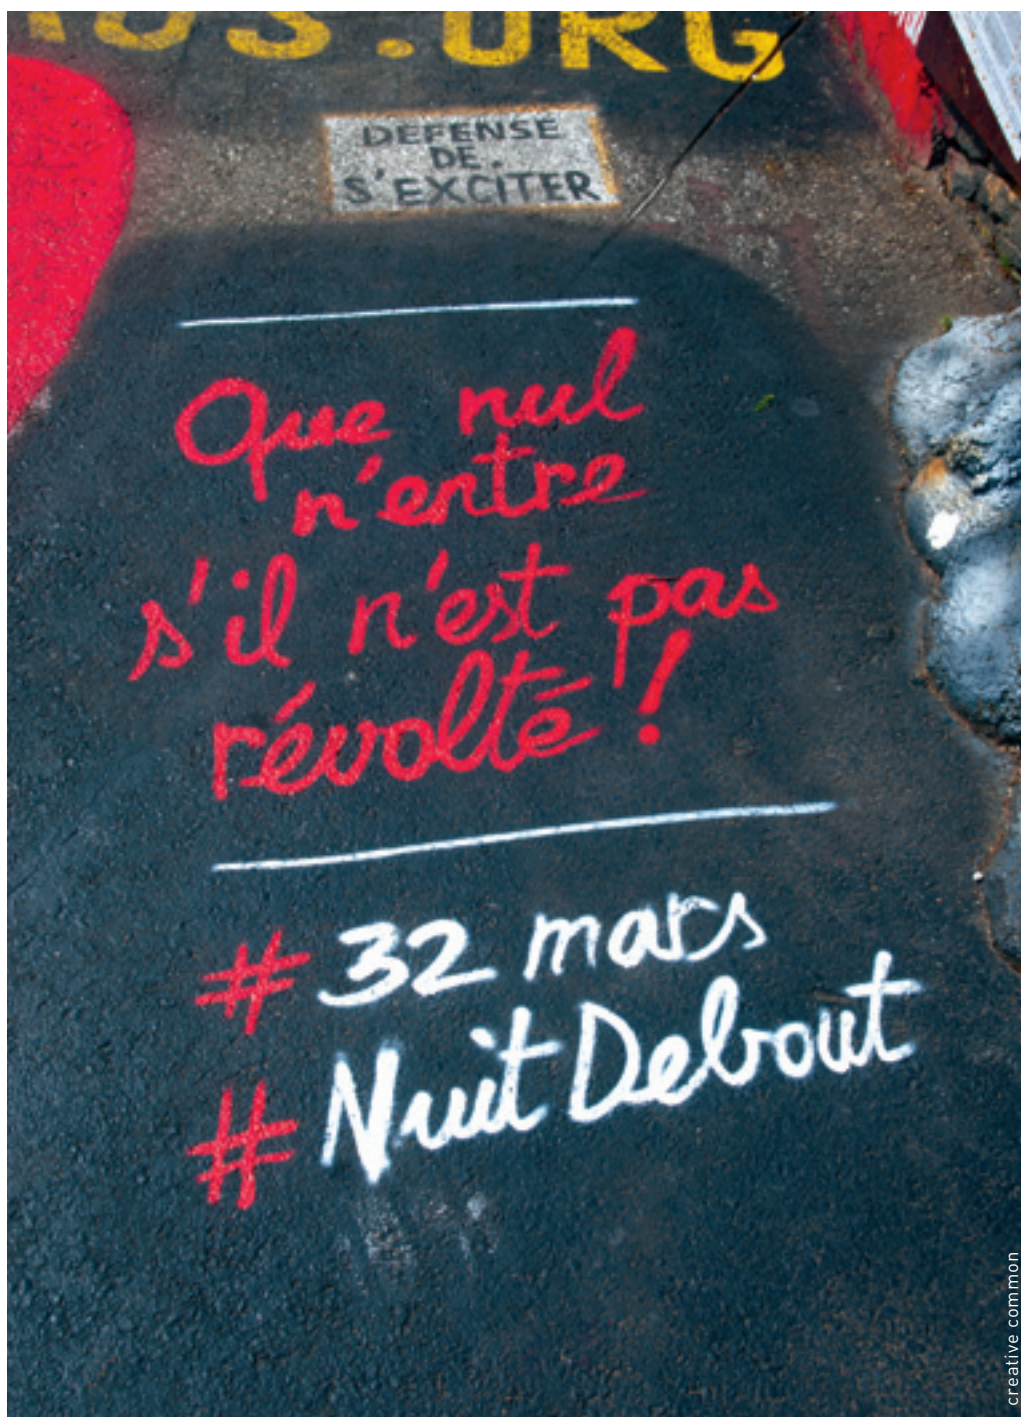 .ORG
DEFENSE
DE.
S'EXCITER
Que nul
n'entre
s'il n'est pas
révolté !
# 32 mars
# Nuit Debout
creative common